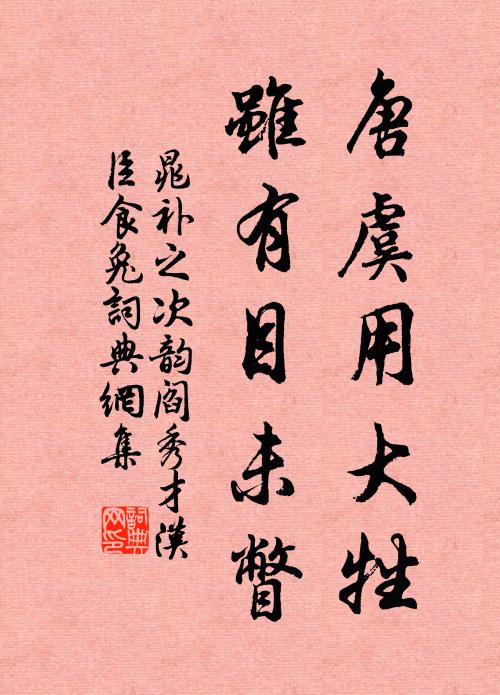 唐虞用大牲
雖有目未瞥
晁补之次韵閻秀才漢
臣食兔詞典網集
詞典网印